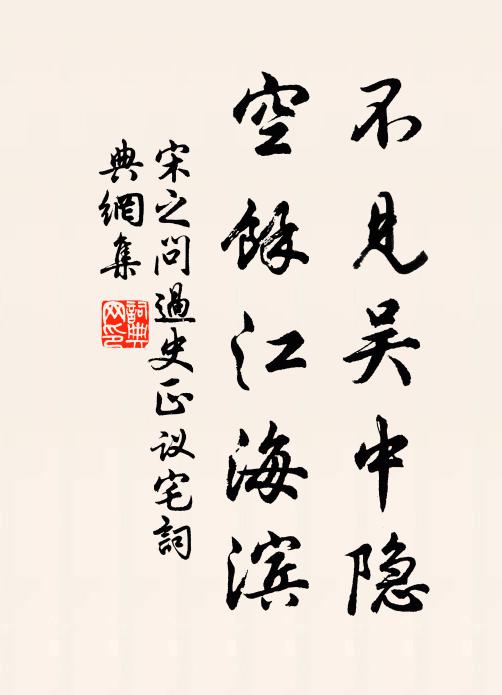 不见吴中隐
空馀江海滨
宋之问過史正议宅詞
典網集
詞典
网印